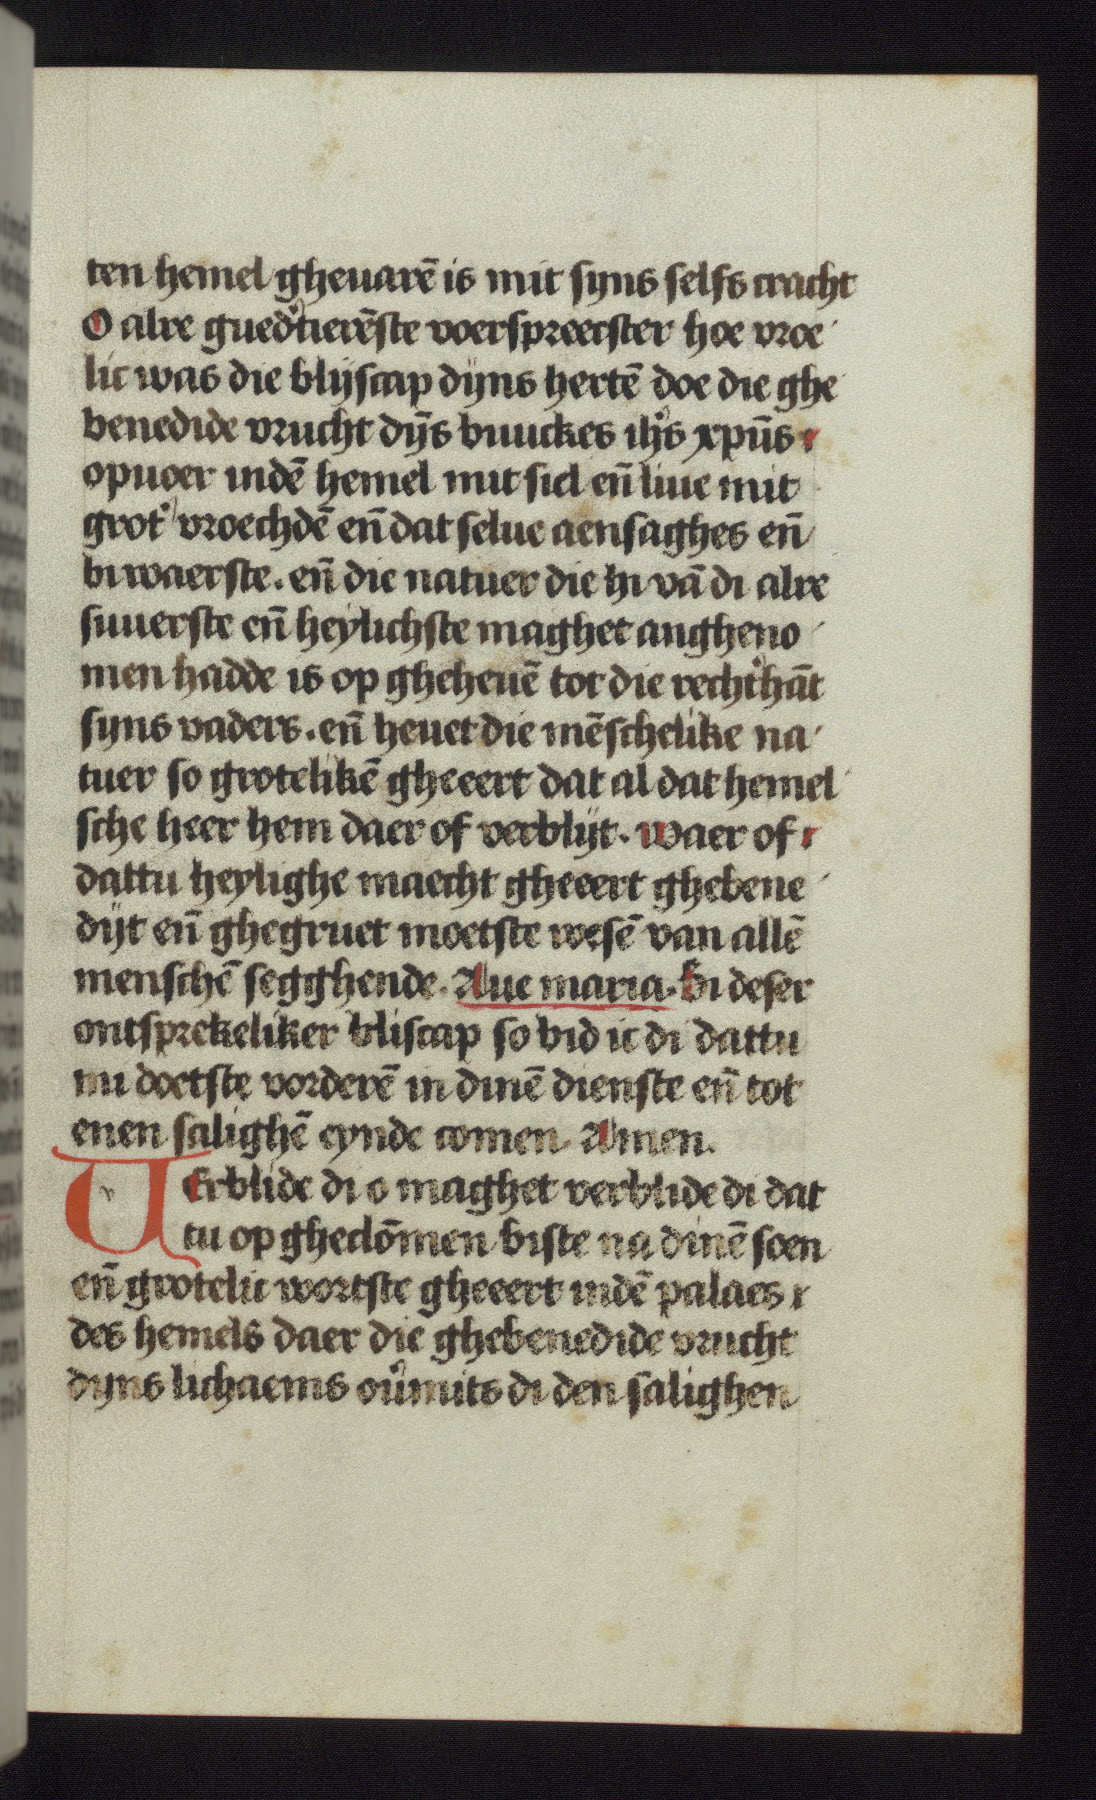 ten hemel gheuarē is mit syns selfs cracht
O alre gued͛tierēste voerspreecster hoe vroe
lic was die blijscap dijns hertē doe die ghe
benedide vrucht dijs buuckes ihͨs xpūs
opuoer indē hemel mit siel en̄ liue mit
grot͛ vroechdē en̄ dat selue aensaghes en̄
biwaerste. en̄ die natuer die hi vā di alre
suuerste en̄ heylichste maghet angheno
men hadde is op gheheuē tot die recht͛hāt
syns vaders. en̄ heuet die mēschelike na
tuer so grotelikē gheeert dat al dat hemel
sche heer hem daer of verblijt. waer of
dattu heylighe maecht gheeert ghebene
dijt en̄ ghegruet moetste wesē van allē
menschē segghende. Aue maria. Bi deser
ontsprekeliker bliscap so bid ic di dattu
mi doetste vorderē in dinē dienste en̄ tot
enen salighē eynde comen. Amen.
VErblide di o maghet verblide di dat
tu op ghedōmen biste na dinē soen
en̄ grotelic wortste gheeert indē palaes
des hemels daer die ghebenedide vrucht
dijns lichaems ou̾mits di den salighen